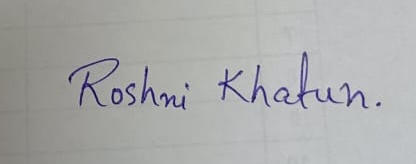 Roshni Khatun.